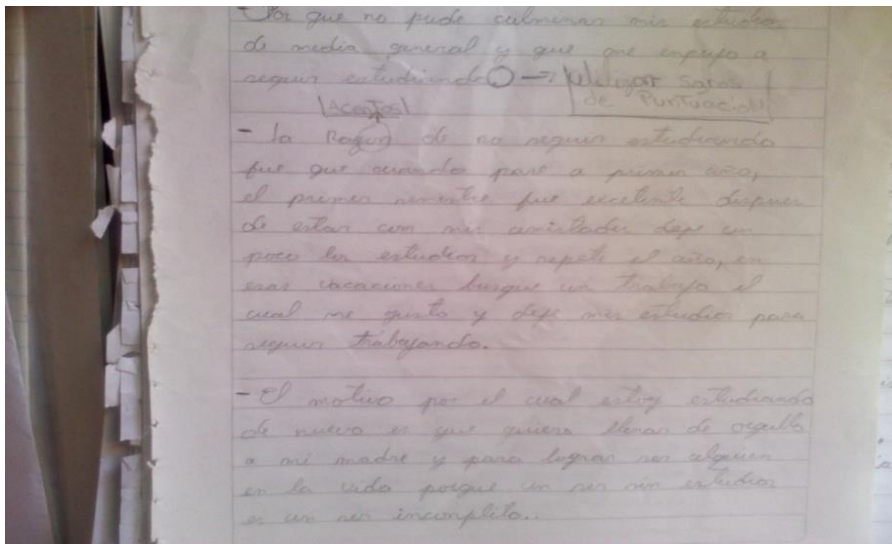 - Por que no pude culminar mis estudios
de media general y que me empujo a
seguir estudiando → utilizar
de Puntuación
Acentos
- la Razon de no seguir estudiando
fue que cuando pase a primer año,
el primer semestre fue excelente despues
de estar con mis amistades deje un
poco los estudios y repeti el año, en
esas vacaciones busque un trabajo el
cual me gusto y deje mis estudios para
seguir trabajando.
- El motivo por el cual estoy estudiando
de nuevo es que quiero llenar de orgullo
a mi madre y para lograr ser alguien
en la vida porque un ser sin estudios
es un ser incompleto..